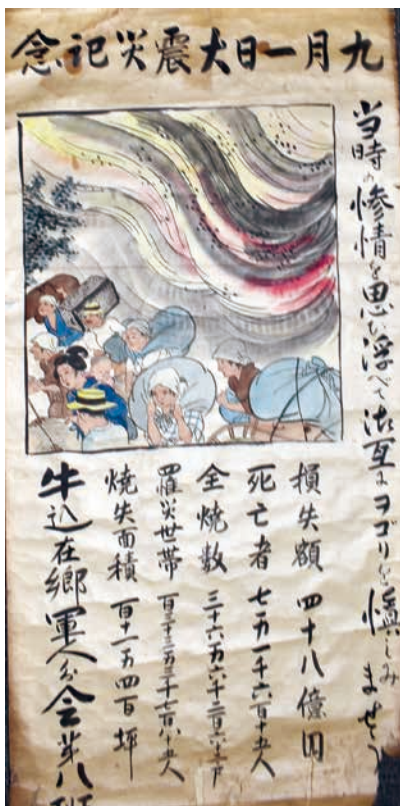 九月一日大震災記念
当時の惨情を思ひ浮べて御互にヲゴリを慎しみませう
損失額 四十八億円
死亡者 七万一千六百十五人
全焼数 三十六万六千二百六十戸
罹災世帯 百三十三万三千七百八十五人
焼失面積 百十一万四百坪
牛込在郷軍人分会第八班